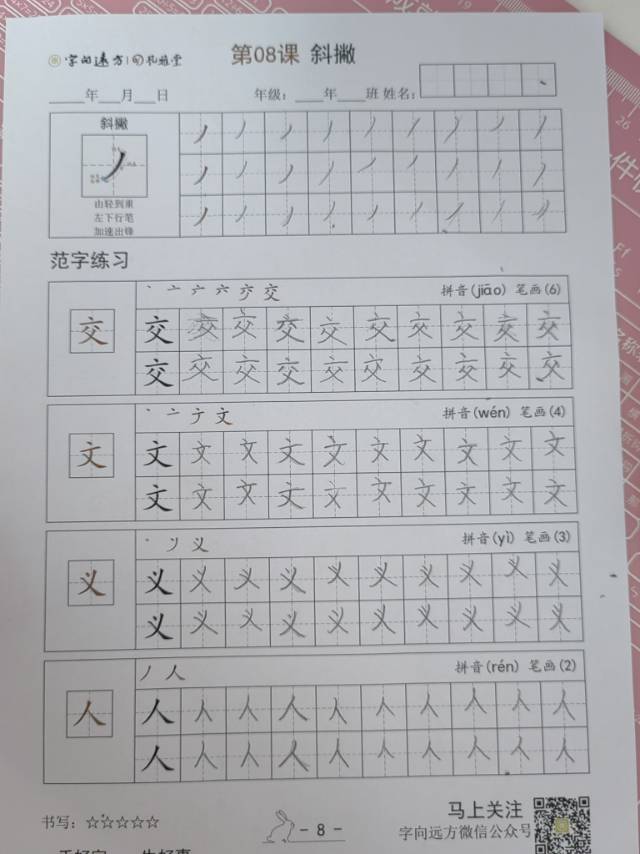 字向远方
第08课 斜撇
____年___月___日 年级：____年____班 姓名：
斜撇
由轻到重
左下行笔
加速出锋
范字练习
丶 亠 六 六 交 交 拼音(jiāo) 笔画(6)
交 交 交 交 交 交 交 交 交 交 交
交 交 交 交 交 交 交 交 交 交
丶 亠 ナ 文 拼音(wén) 笔画(4)
文 文 文 文 文 文 文 文 文 文 文
文 文 文 文 文 文 文 文 文 文
丶 丿 义 拼音(yì) 笔画(3)
义 义 义 义 义 义 义 义 义 义 义
义 义 义 义 义 义 义 义 义 义
丿 人 拼音(rén) 笔画(2)
人 人 人 人 人 人 人 人 人 人 人
人 人 人 人 人 人 人 人 人 人
书写：☆☆☆☆☆
- 8 -
马上关注
字向远方微信公众号